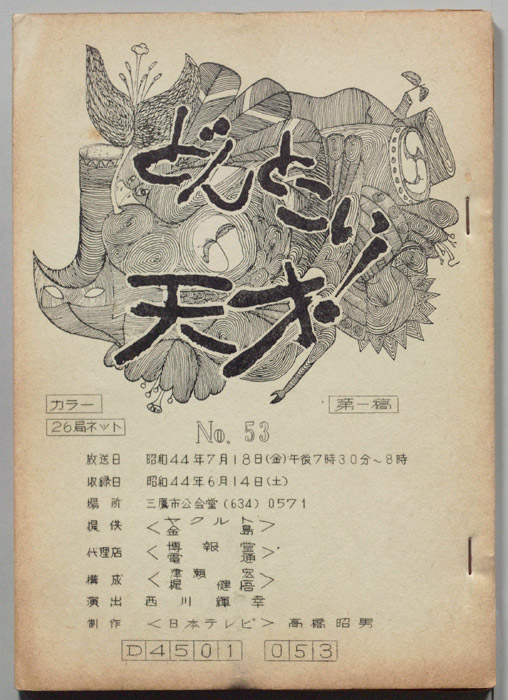 どんとこい
天才!
カラー
第一稿
26局ネット
No. 53
放送日 昭和44年7月18日(金)午後7時30分~8時
収録日 昭和44年6月14日(土)
場所 三鷹市公会堂(634)0571
提供 <ヤクルト
金島>
代理店 <博報堂
電通>
構成 <津瀬宏
梶健悟>
演出 西川輝幸
制作 <日本テレビ> 高橋昭男
D4501 053